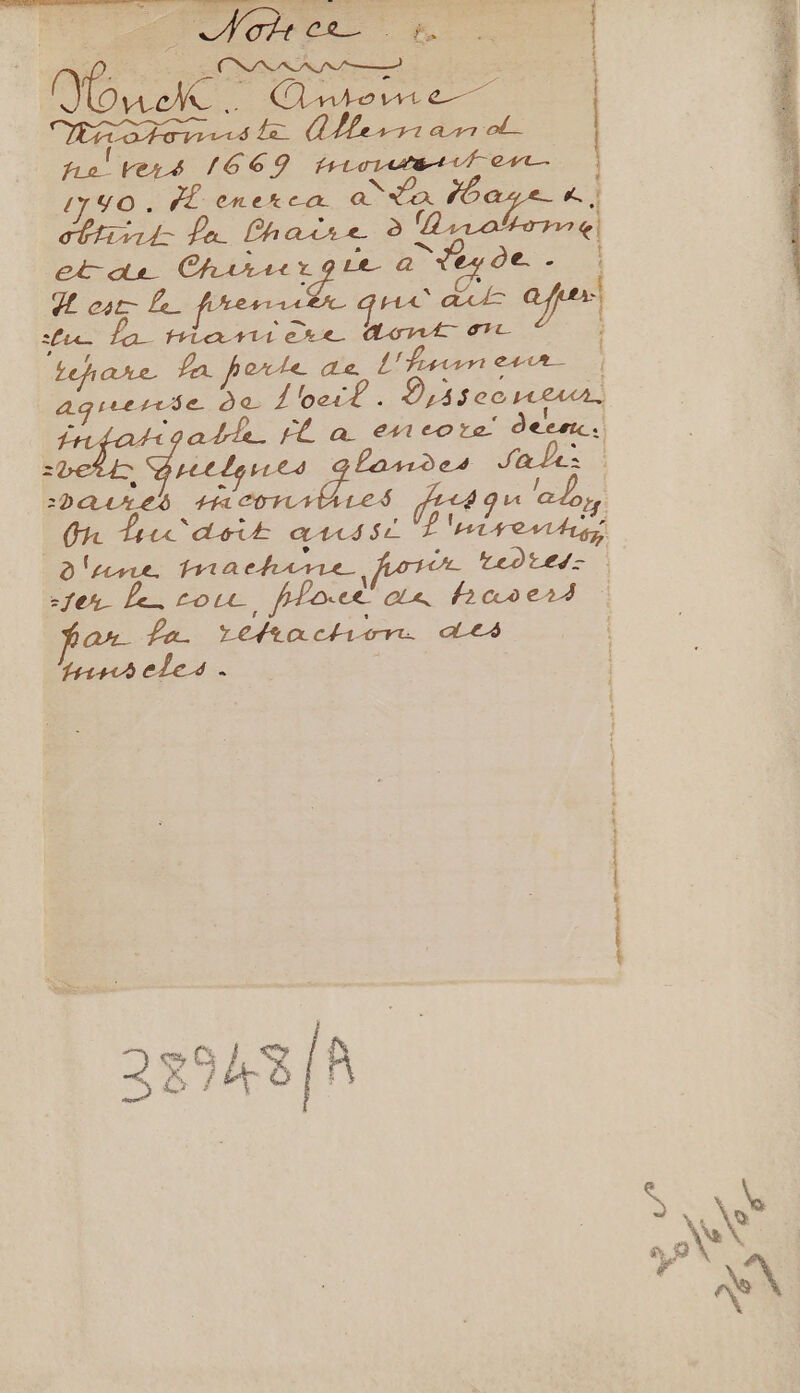 Notice
Nuck. Antoine
Anatomiste Allemand
né vers 1669 mourut en
1740. Il exerca a la Haye &
obtint la Chaire d'Anatomie
et de Chirurgie a Leyde.
Il est le premier qui ait apper=
=cu la maniere dont on
repare la perte de l'humeur
aqueuse de l'oeil. Dissequeur
infatigable il a encore decou=
=vert quelques glandes Sali=
=vaires inconnues jusqu'alors
On lui doit aussi l'invention
d'une machine pour redres=
=ser le cou placé de travers
par la retraction des
muscles.
38948/A